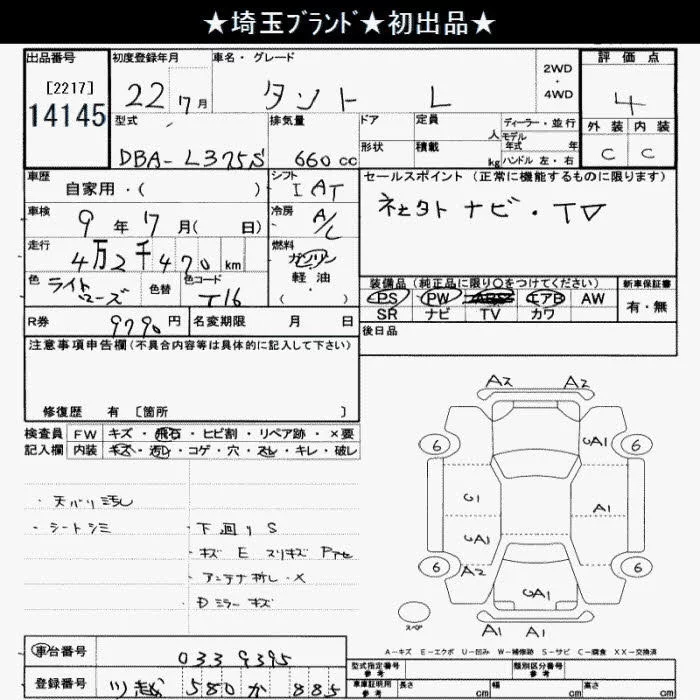 ★埼玉ﾌﾞﾗﾝﾄﾞ★初出品★
出品番号 初度登録年月 車名・グレード 2WD・4WD 評価点
[2217]
14145
22 17月 タント L 4
型式 排気量 ドア 定員 人 ディーラー・並行 外装 内装
モデル年式 年
形状 積載 kg ハンドル 左・右
DBA-L375S 660cc C C
車歴 シフト セールスポイント(正常に機能するものに限ります)
自家用・( ) IAT
ナビ・TV
車検 冷房
9年17月( 日) A/C
走行 燃料
4万2千470km ガソリン
軽油・( )
色 ライトローズ 色替 色コード T16
装備品(純正品に限り○をつけてください) 新車保証書
PS PW ABS エアB AW 有・無
SR ナビ TV カワ
R券 9790円 名変期限 月 日
後日品
注意事項申告欄(不具合内容等は具体的に記入して下さい)
修復歴 有 [箇所 ]
検査員記入欄 FW キズ・飛石・ヒビ割・リペア跡・×要
内装 キズ・汚レ・コゲ・穴・スレ・キレ・破レ
A2 A2
6 UA1 6
U1 A1
UA1
6 A2 6
UA1
A1 A1
スペア
・天バリ汚レ
・シートシミ
・下廻りS
・キズ E スリキズ
・アンテナ折レ・X
・Dミラーキズ
A-キズ E-エクボ U-凹み W-補修跡 S-サビ C-腐食 XX-交換済
車台番号 0339395
登録番号 川越 580 か 885
型式指定番号 参考 類別区分番号 参考
車庫証明用 参考 長さ cm 幅 cm 高さ cm